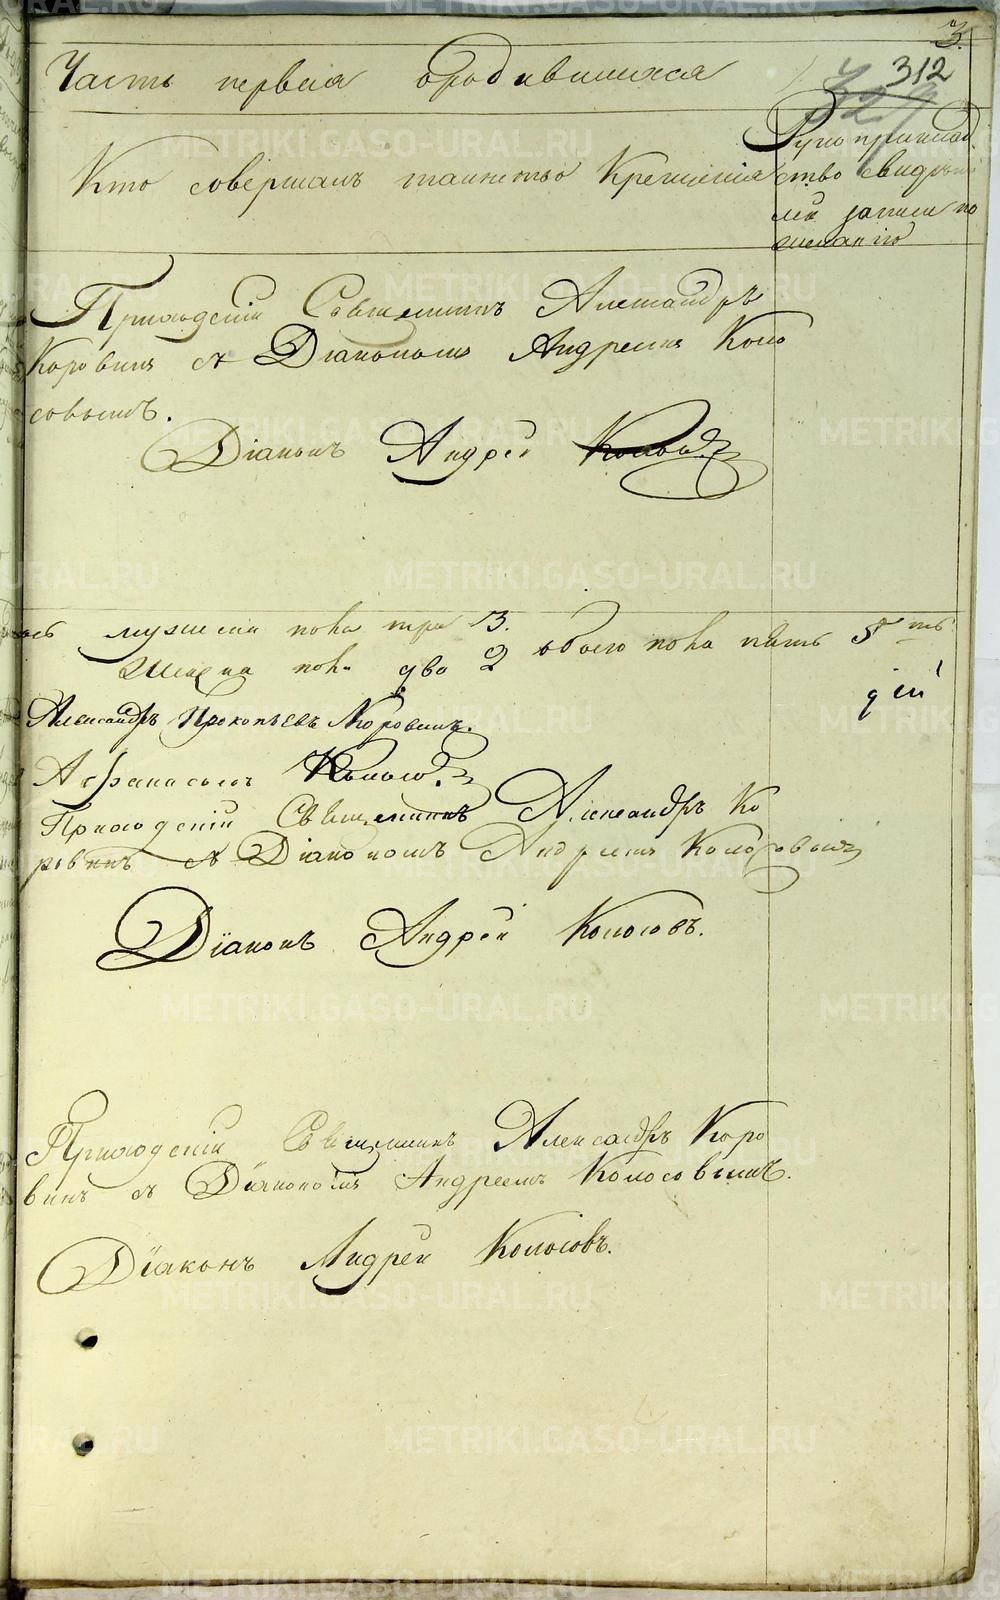 3.
312
Часть первая о родившихся
Кто совершалъ таинство Крещенія
Рукоприклад
ство свидѣте
лей записи по
желанію
Приходскій Священникъ Александръ
Коровинъ съ Діакономъ Андреемъ Коло
совымъ.
Діаконъ Андрей
мужеска пола три 3.
женска пола два 2 обоего пола пять 5
Александръ Прокопьевъ Коровинъ.
Приходскій Священникъ Александръ Ко
ровинъ съ Діакономъ Андреемъ Колосовымъ
Діаконъ Андрей Колосовъ.
Приходскій Священникъ Александръ Коро
винъ съ Діакономъ Андреемъ Колосовымъ.
Діаконъ Андрей Колосовъ.
METRIKI.GASO-URAL.RU